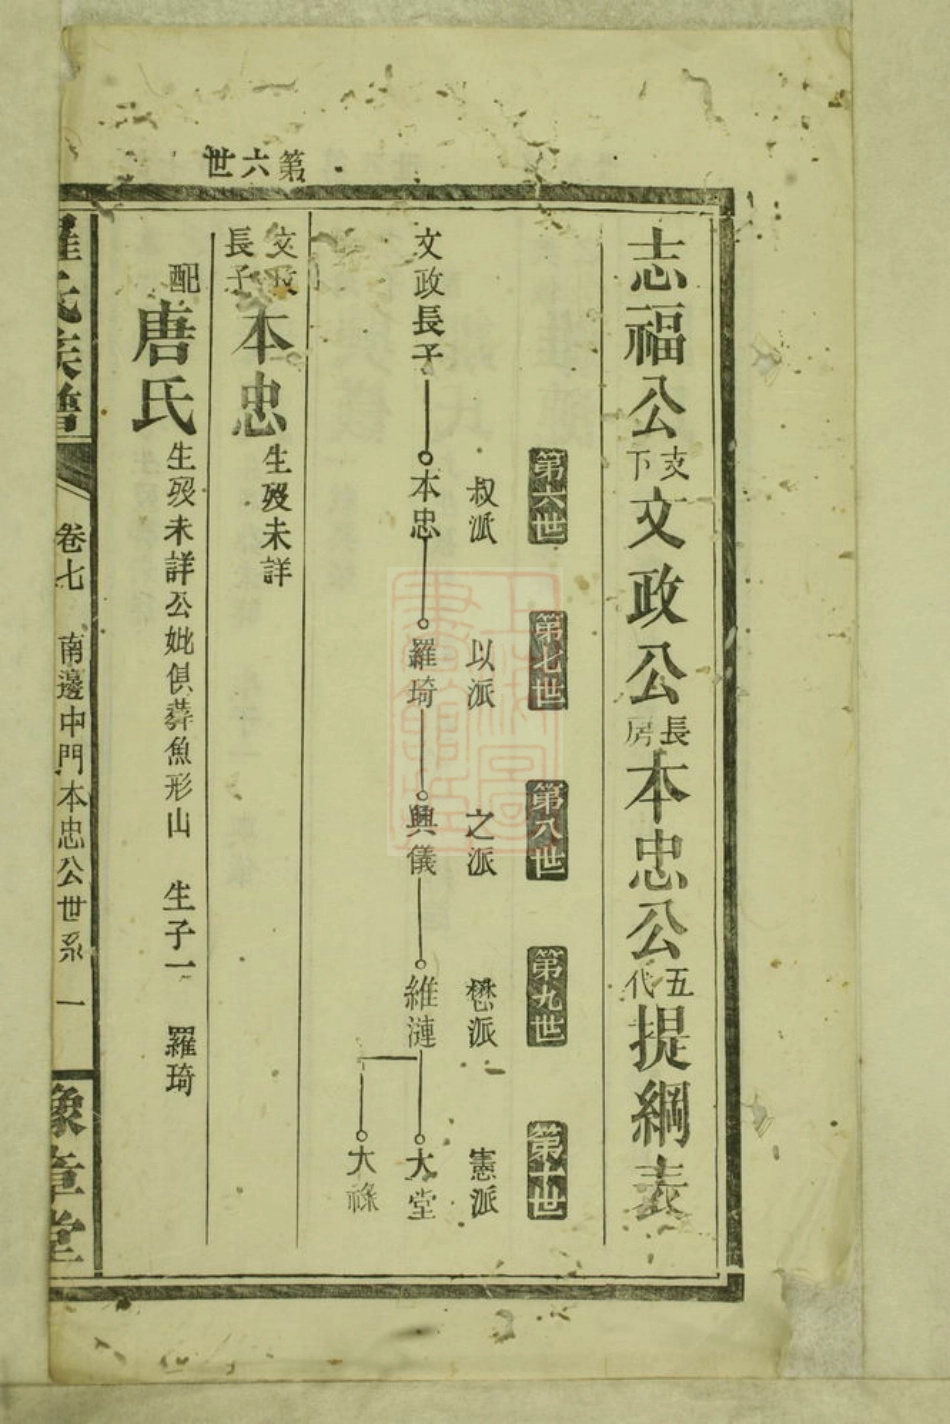 第六世
志福公支下文政公長房本忠公五代提綱表
第六世
第七世
第八世
第九世
第十世
叔派
以派
之派
懋派
憲派
文政長子
本忠
羅琦
興儀
維漣
大堂
大祿
文政長子本忠生殁未詳
配唐氏生殁未詳公妣俱葬魚形山 生子一 羅琦
羅氏族譜
卷七 南邊中門本忠公世系 一
豫章堂